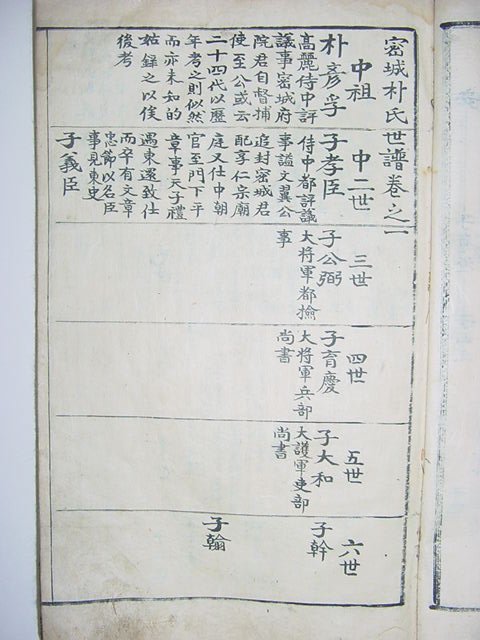 密城朴氏世譜卷之一
中祖
朴彥孚
高麗侍中評
議事密城府
院君自督捕
使至公或云
二十四代以歷
年考之則似然
而亦未知的
姑錄之以俟
後考
中二世
子孝臣
侍中都評議
事謚文翼公
追封密城君
配享仁宗廟
庭又仕中朝
官至門下平
章事天子禮
遇東還致仕
而卒有文章
忠節以名臣
事見東史
子義臣
三世
子公弼
大將軍都檢
事
四世
子育慶
大將軍兵部
尚書
五世
子大和
大護軍吏部
尚書
六世
子幹
子翰